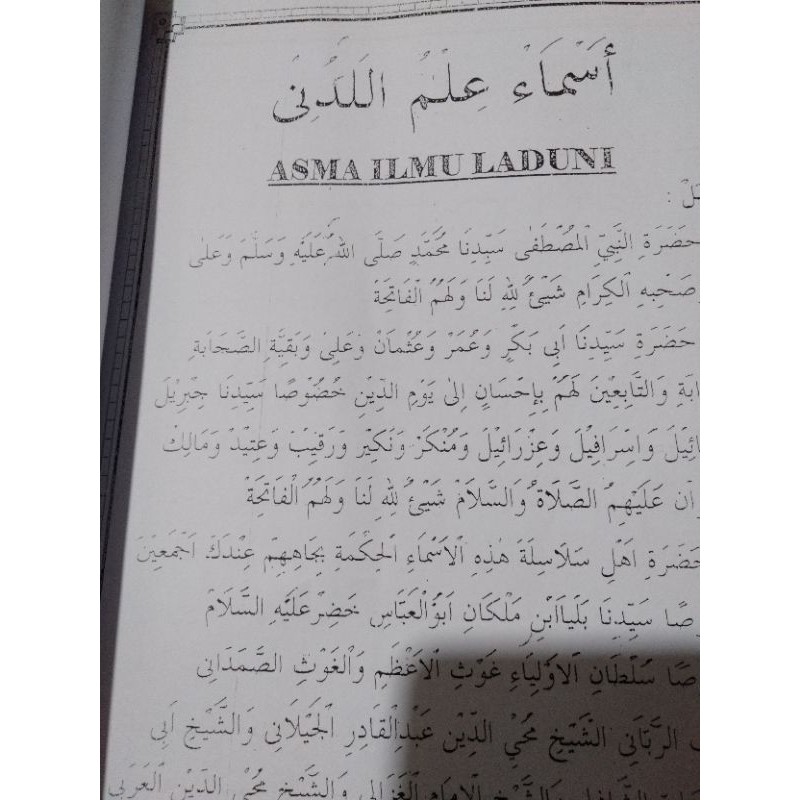 أَسْمَاءُ عِلْمُ اللَّدُنِى
ASMA ILMU LADUNI
حَضْرَةِ النَّبِيِّ الْمُصْطَفَى سَيِّدِنَا مُحَمَّدٍ صَلَّى اللهُ عَلَيْهِ وَسَلَّمَ وَعَلَى
وَصَحْبِهِ الْكِرَامِ شَيْئٌ لِلَّهِ لَنَا وَلَهُمُ الْفَاتِحَةْ
حَضْرَةِ سَيِّدِنَا اَبِى بَكْرٍ وَعُمَرْ وَعُثْمَانْ وَعَلِىْ وَبَقِيَّةِ الصَّحَابَةِ
وَالتَّابِعِيْنَ لَهُمْ بِاِحْسَانٍ اِلَى يَوْمِ الدِّيْنِ خُصُوْصًا سَيِّدِنَا جِبْرِيْلَ
وَاِسْرَافِيْلَ وَعِزْرَائِيْلَ وَمُنْكَرْ وَنَكِيْر وَرَقِيْبْ وَعَتِيْدْ وَمَالِكْ
عَلَيْهِمُ الصَّلَاةُ وَالسَّلَامْ شَيْئٌ لِلَّهِ لَنَا وَلَهُمُ الْفَاتِحَةْ
حَضْرَةِ اَهْلِ سَلَاسِلَةِ هٰذِهِ الْاَسْمَاءِ الْحِكْمَةِ بِجَاهِهِمْ عِنْدَكَ اَجْمَعِيْنَ
سَيِّدِنَا بَلْيَااَبْنِ مَلْكَانِ اَبُوْالْعَبَّاسِ خَضِرْ عَلَيْهِ السَّلَامْ
سُلْطَانِ الْاَوْلِيَاءِ غَوْثِ الْاَعْظَمِ وَالْغَوْثِ الصَّمَدَانِى
الرَّبَّانِى الشَّيْخِ مُحْيِ الدِّيْنِ عَبْدِالْقَادِرِ الْجَيْلَانِى وَالشَّيْخِ اَبِى
وَالشَّيْخِ الْاِمَامِ الْغَزَالِى وَالشَّيْخِ مُحْيِ الدِّيْنِ الْعَرَبِى